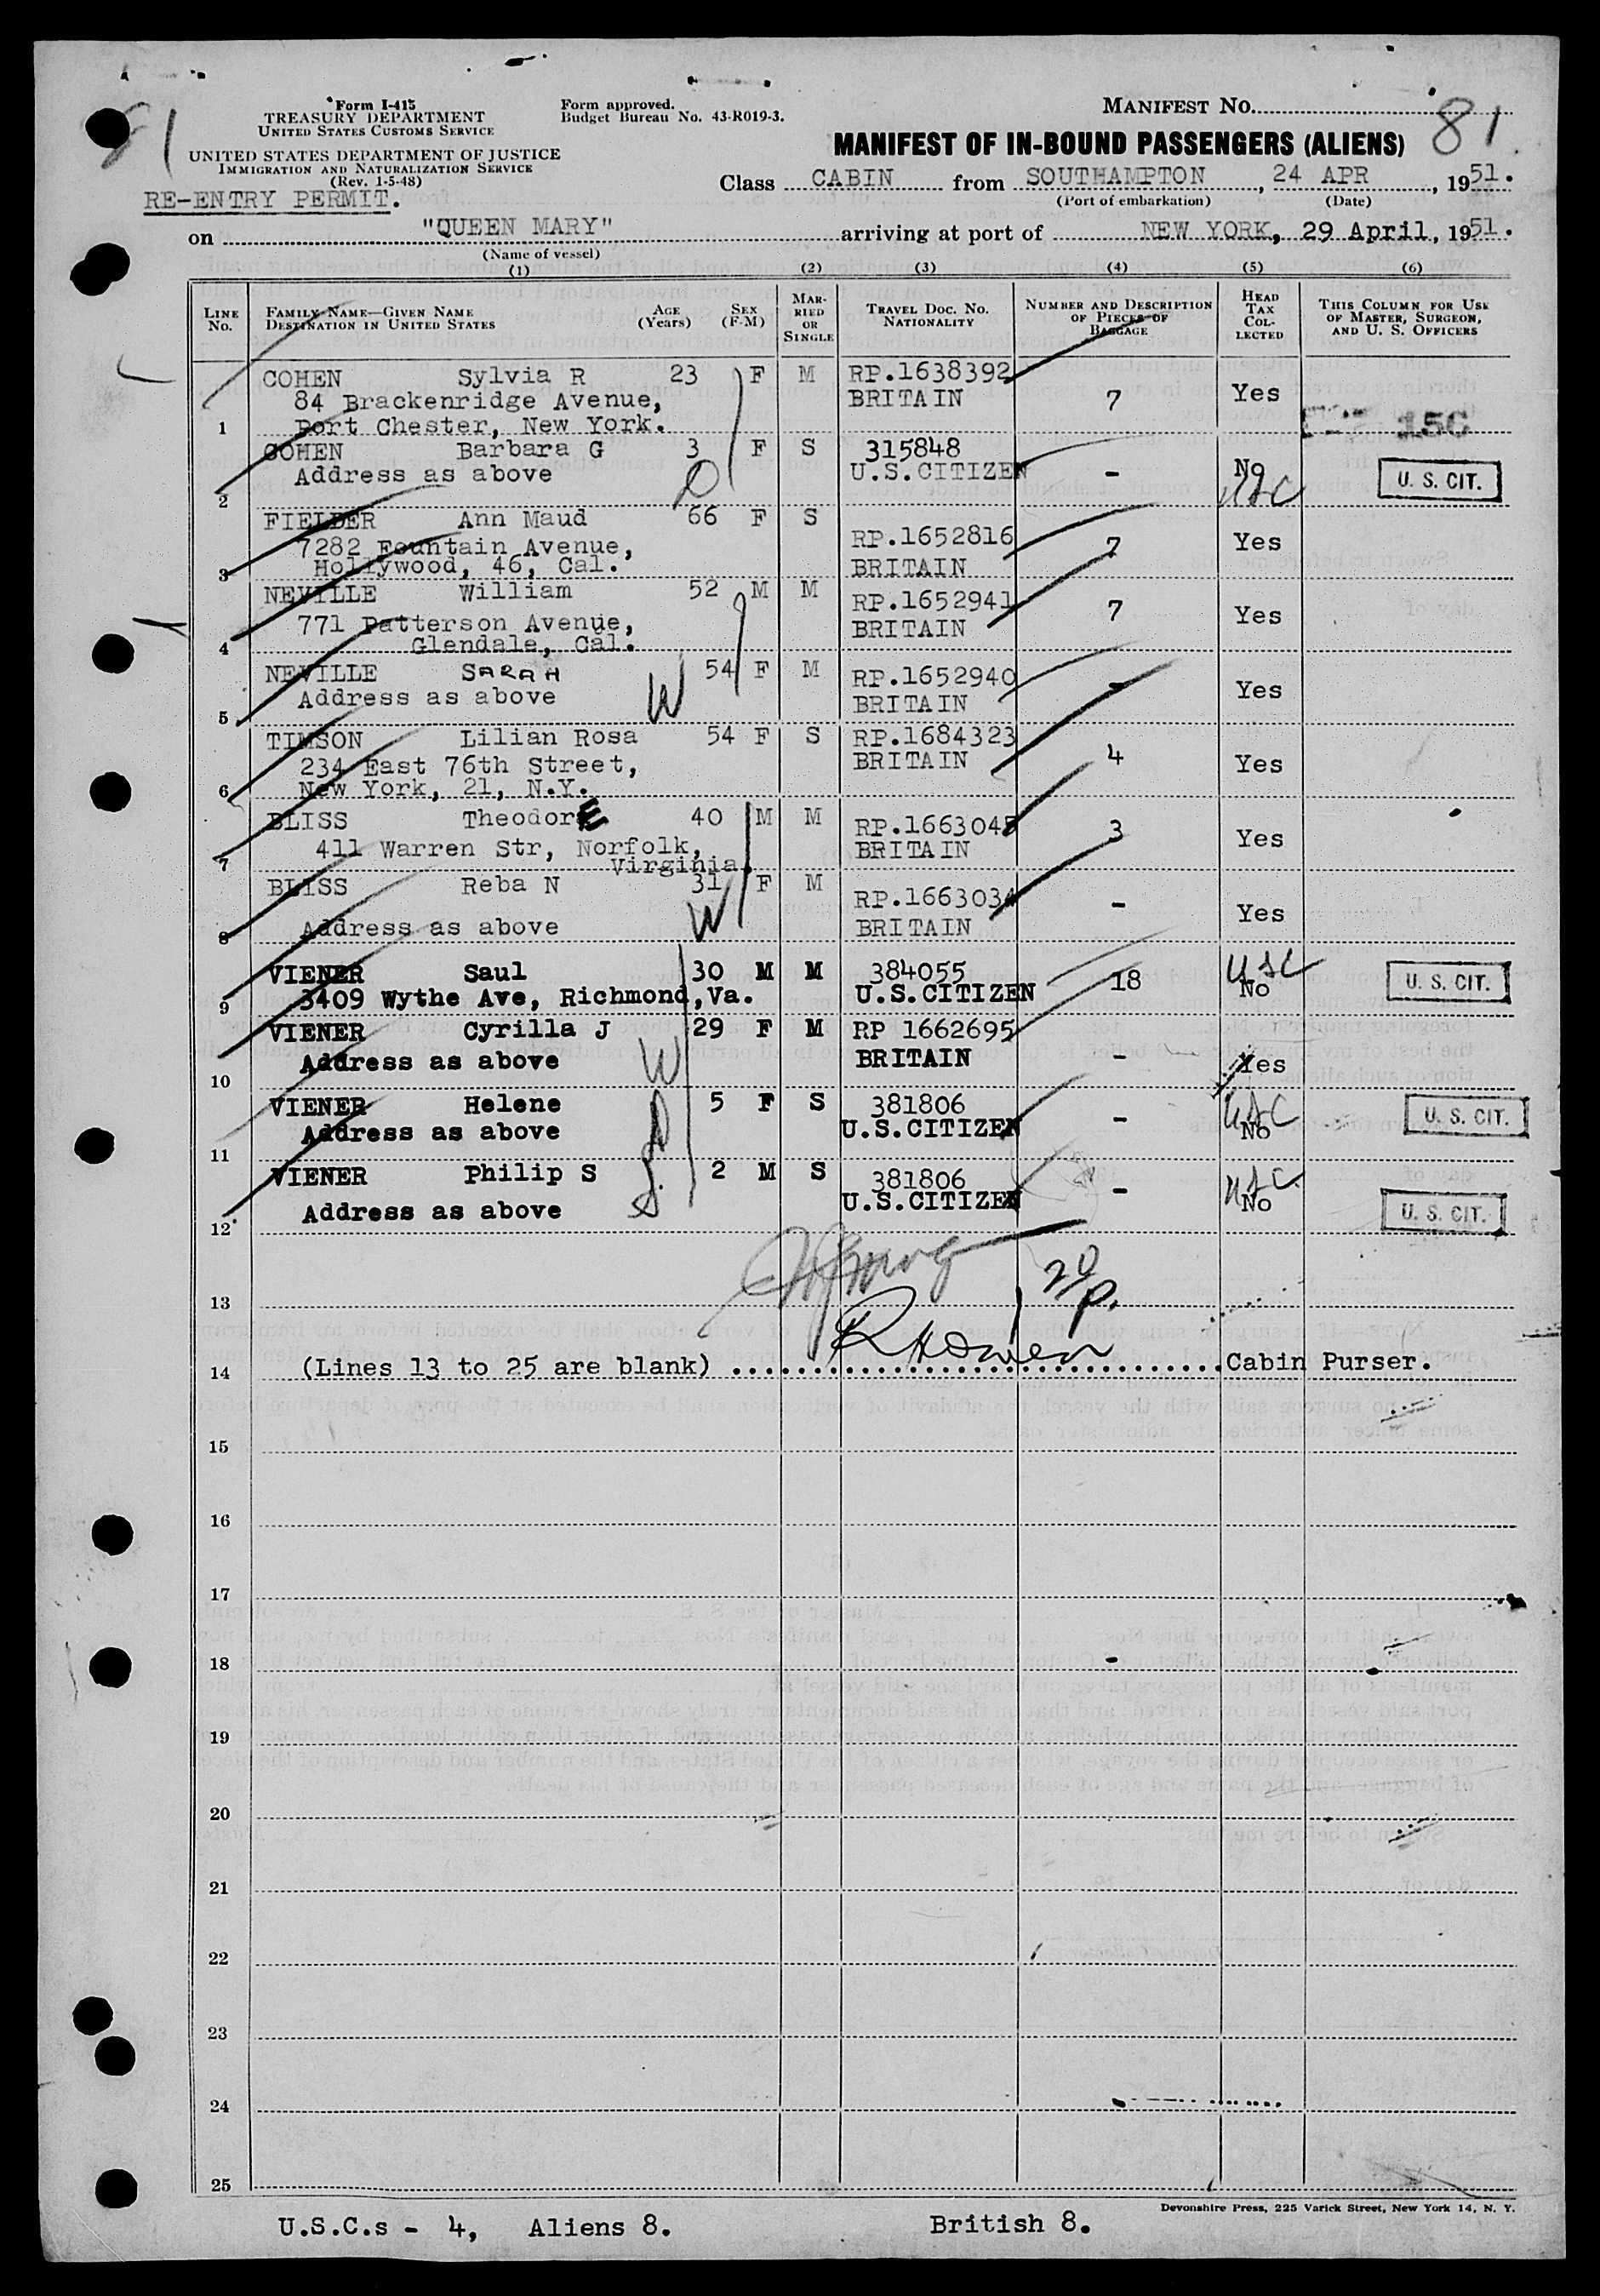 Form I-415
TREASURY DEPARTMENT
UNITED STATES CUSTOMS SERVICE
UNITED STATES DEPARTMENT OF JUSTICE
IMMIGRATION AND NATURALIZATION SERVICE
(Rev. 1-5-48)
RE-ENTRY PERMIT.
Form approved.
Budget Bureau No. 43-R019-3.
MANIFEST No. 81
81
MANIFEST OF IN-BOUND PASSENGERS (ALIENS)
Class CABIN from SOUTHAMPTON, 24 APR, 1951.
(Port of embarkation) (Date)
on "QUEEN MARY" arriving at port of NEW YORK, 29 April, 1951.
(Name of vessel)
(1) (2) (3) (4) (5) (6)
LINE No. FAMILY NAME—GIVEN NAME DESTINATION IN UNITED STATES AGE (Years) SEX (F-M) MARRIED OR SINGLE TRAVEL DOC. NO. NATIONALITY NUMBER AND DESCRIPTION OF PIECES OF BAGGAGE HEAD TAX COLLECTED THIS COLUMN FOR USE OF MASTER, SURGEON, AND U. S. OFFICERS
COHEN Sylvia R 23 F M RP.1638392
84 Brackenridge Avenue, BRITAIN 7 Yes
1 Port Chester, New York.
COHEN Barbara G 3 F S 315848
Address as above U.S.CITIZEN - No U. S. CIT.
2 D USC
FIELDER Ann Maud 66 F S
7282 Fountain Avenue, RP.1652816 7 Yes
3 Hollywood, 46, Cal. BRITAIN
NEVILLE William 52 M M RP.1652941
771 Patterson Avenue, BRITAIN 7 Yes
4 Glendale, Cal.
NEVILLE SARAH 54 F M RP.1652940
Address as above W BRITAIN - Yes
5
TIMSON Lilian Rosa 54 F S RP.1684323
234 East 76th Street, BRITAIN 4 Yes
6 New York, 21, N.Y.
BLISS TheodorE 40 M M RP.1663045 3 Yes
411 Warren Str, Norfolk, BRITAIN
7 Virginia.
BLISS Reba N 31 F M RP.1663034 - Yes
8 Address as above W BRITAIN
VIENER Saul 30 M M 384055 18 USC No U. S. CIT.
9 3409 Wythe Ave, Richmond, Va. U.S.CITIZEN
VIENER Cyrilla J 29 F M RP 1662695
Address as above W BRITAIN - Yes
10
VIENER Helene 5 F S 381806 USC
Address as above D U.S.CITIZEN - No U. S. CIT.
11
VIENER Philip S 2 M S 381806 USC
Address as above S. U.S.CITIZEN - No U. S. CIT.
12
20
P.
13
14 (Lines 13 to 25 are blank) Cabin Purser.
15
16
17
18
19
20
21
22
23
24
25
Devonshire Press, 225 Varick Street, New York 14, N. Y.
U.S.C.s - 4, Aliens 8. British 8.